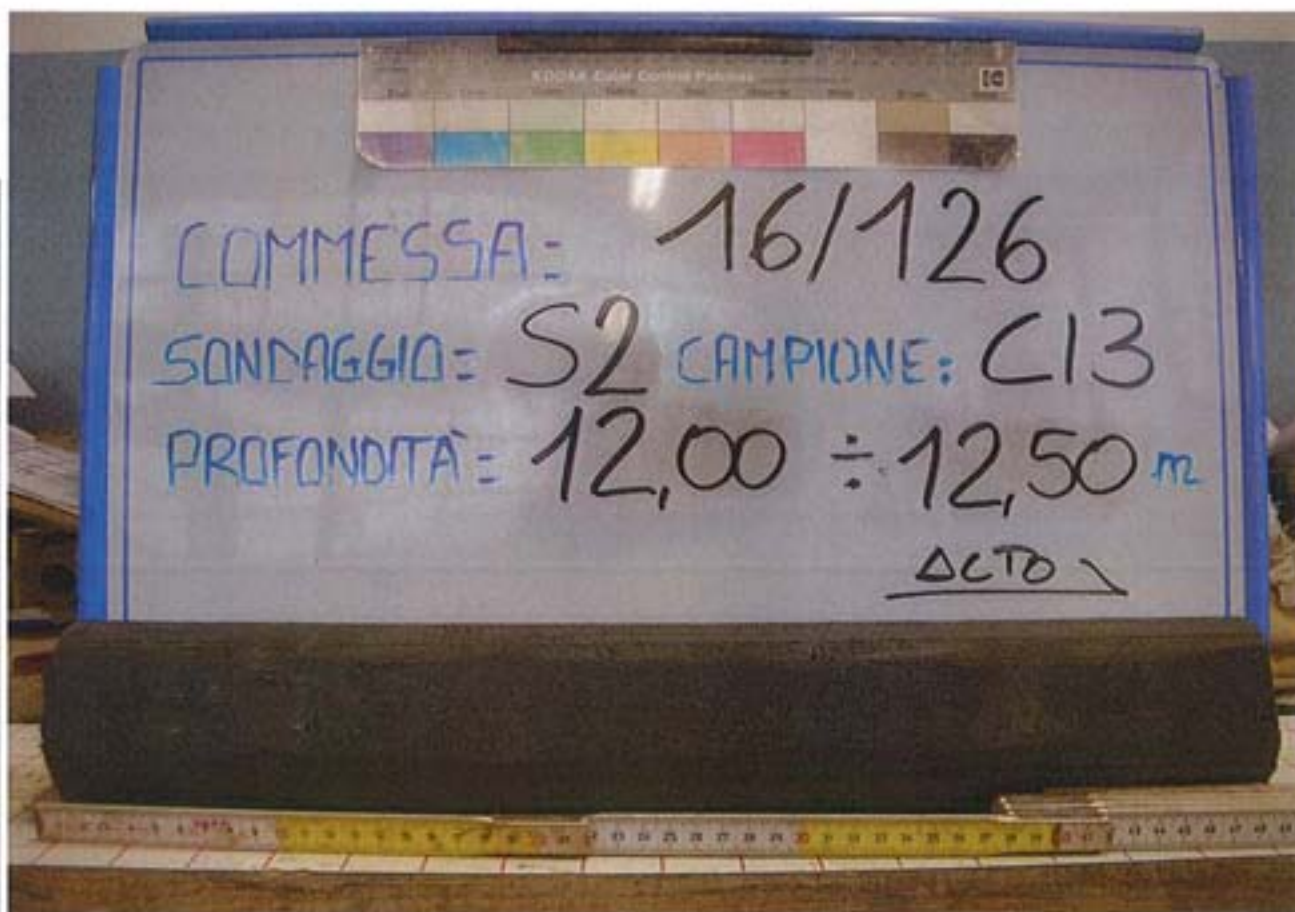 KODAK Color Control Patches
COMMESSA: 16/126
SONDAGGIO: S2 CAMPIONE: CI3
PROFONDITÀ: 12,00 ÷ 12,50 m
ALTO